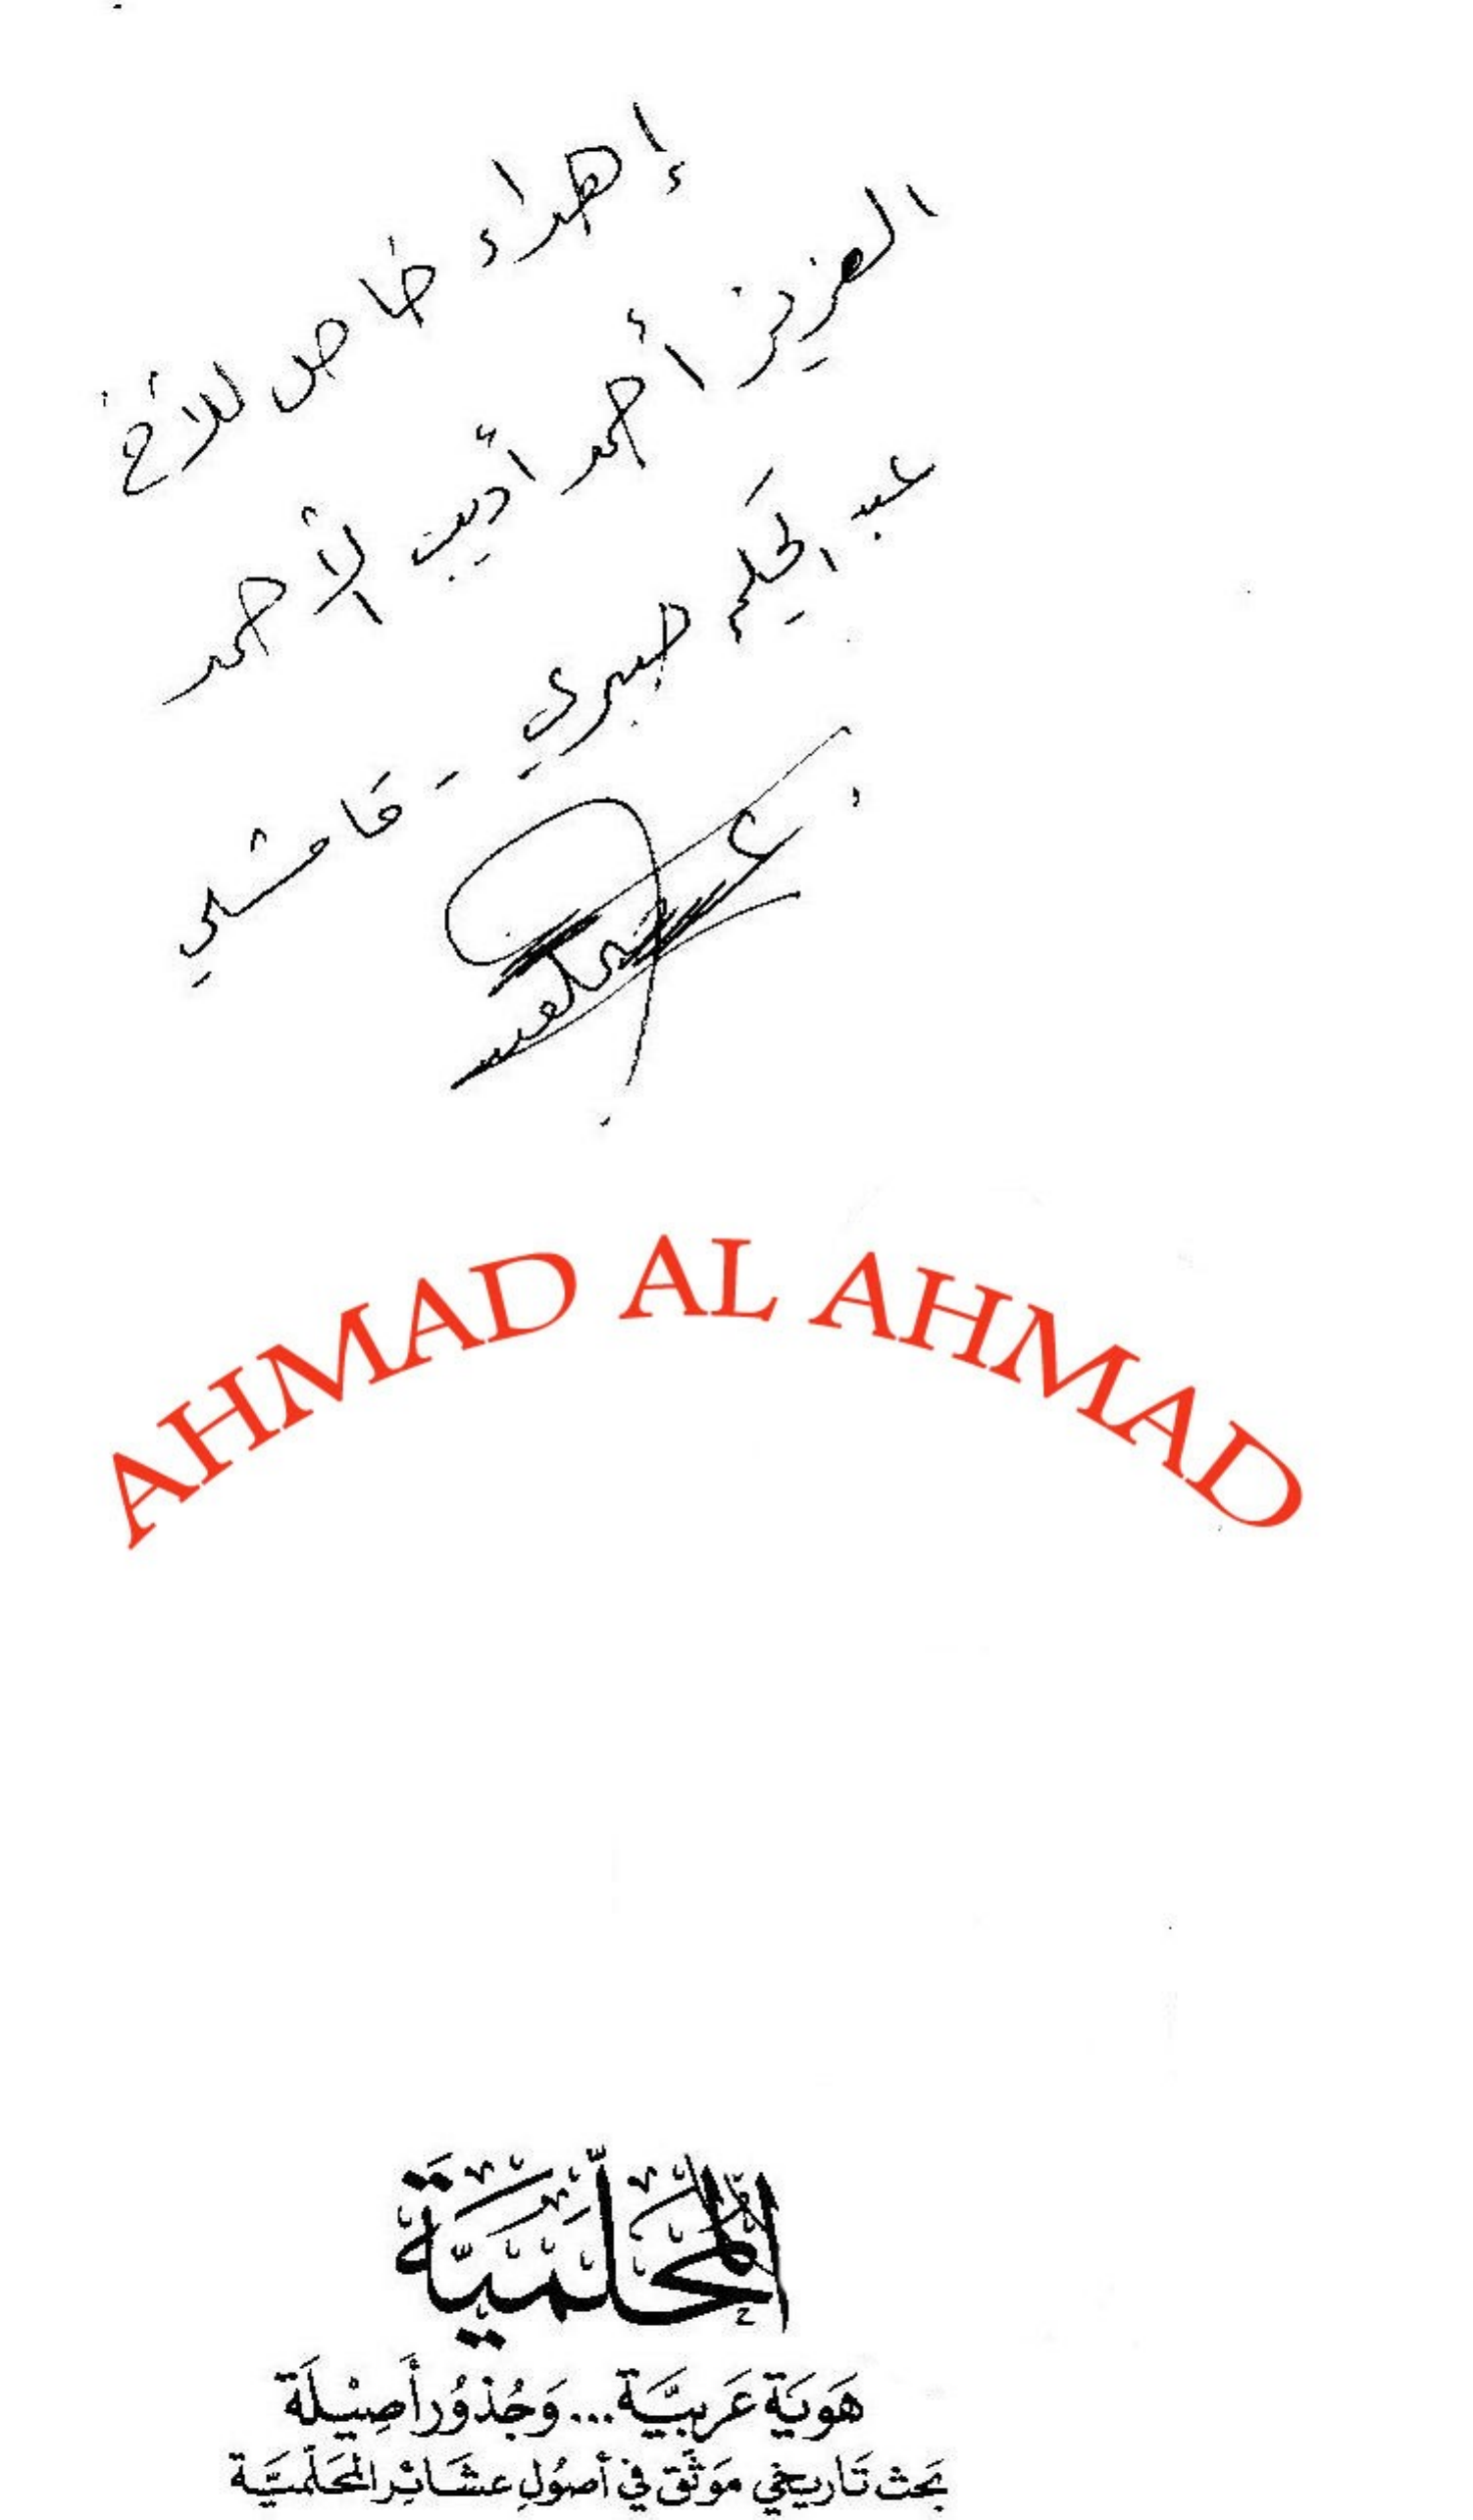 إهداء خاص للأخ
العزيز أحمد أديب الأحمد
عبد الحكيم صبري - قامشلي
AHMAD AL AHMAD
المحَلَّميَّة
هَويَة عَربيَّة... وَجُذوُر أَصِيْلَة
بَحث تَاريخي مَوثَّق في أصوُلِ عشَائر المحَلّميَّة